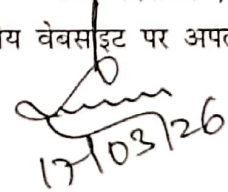 य वेबसाईट पर अपल
17/03/26